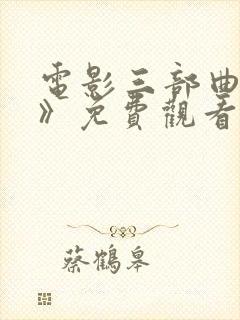 電影三部曲
》免費觀看
蔡鶴皋